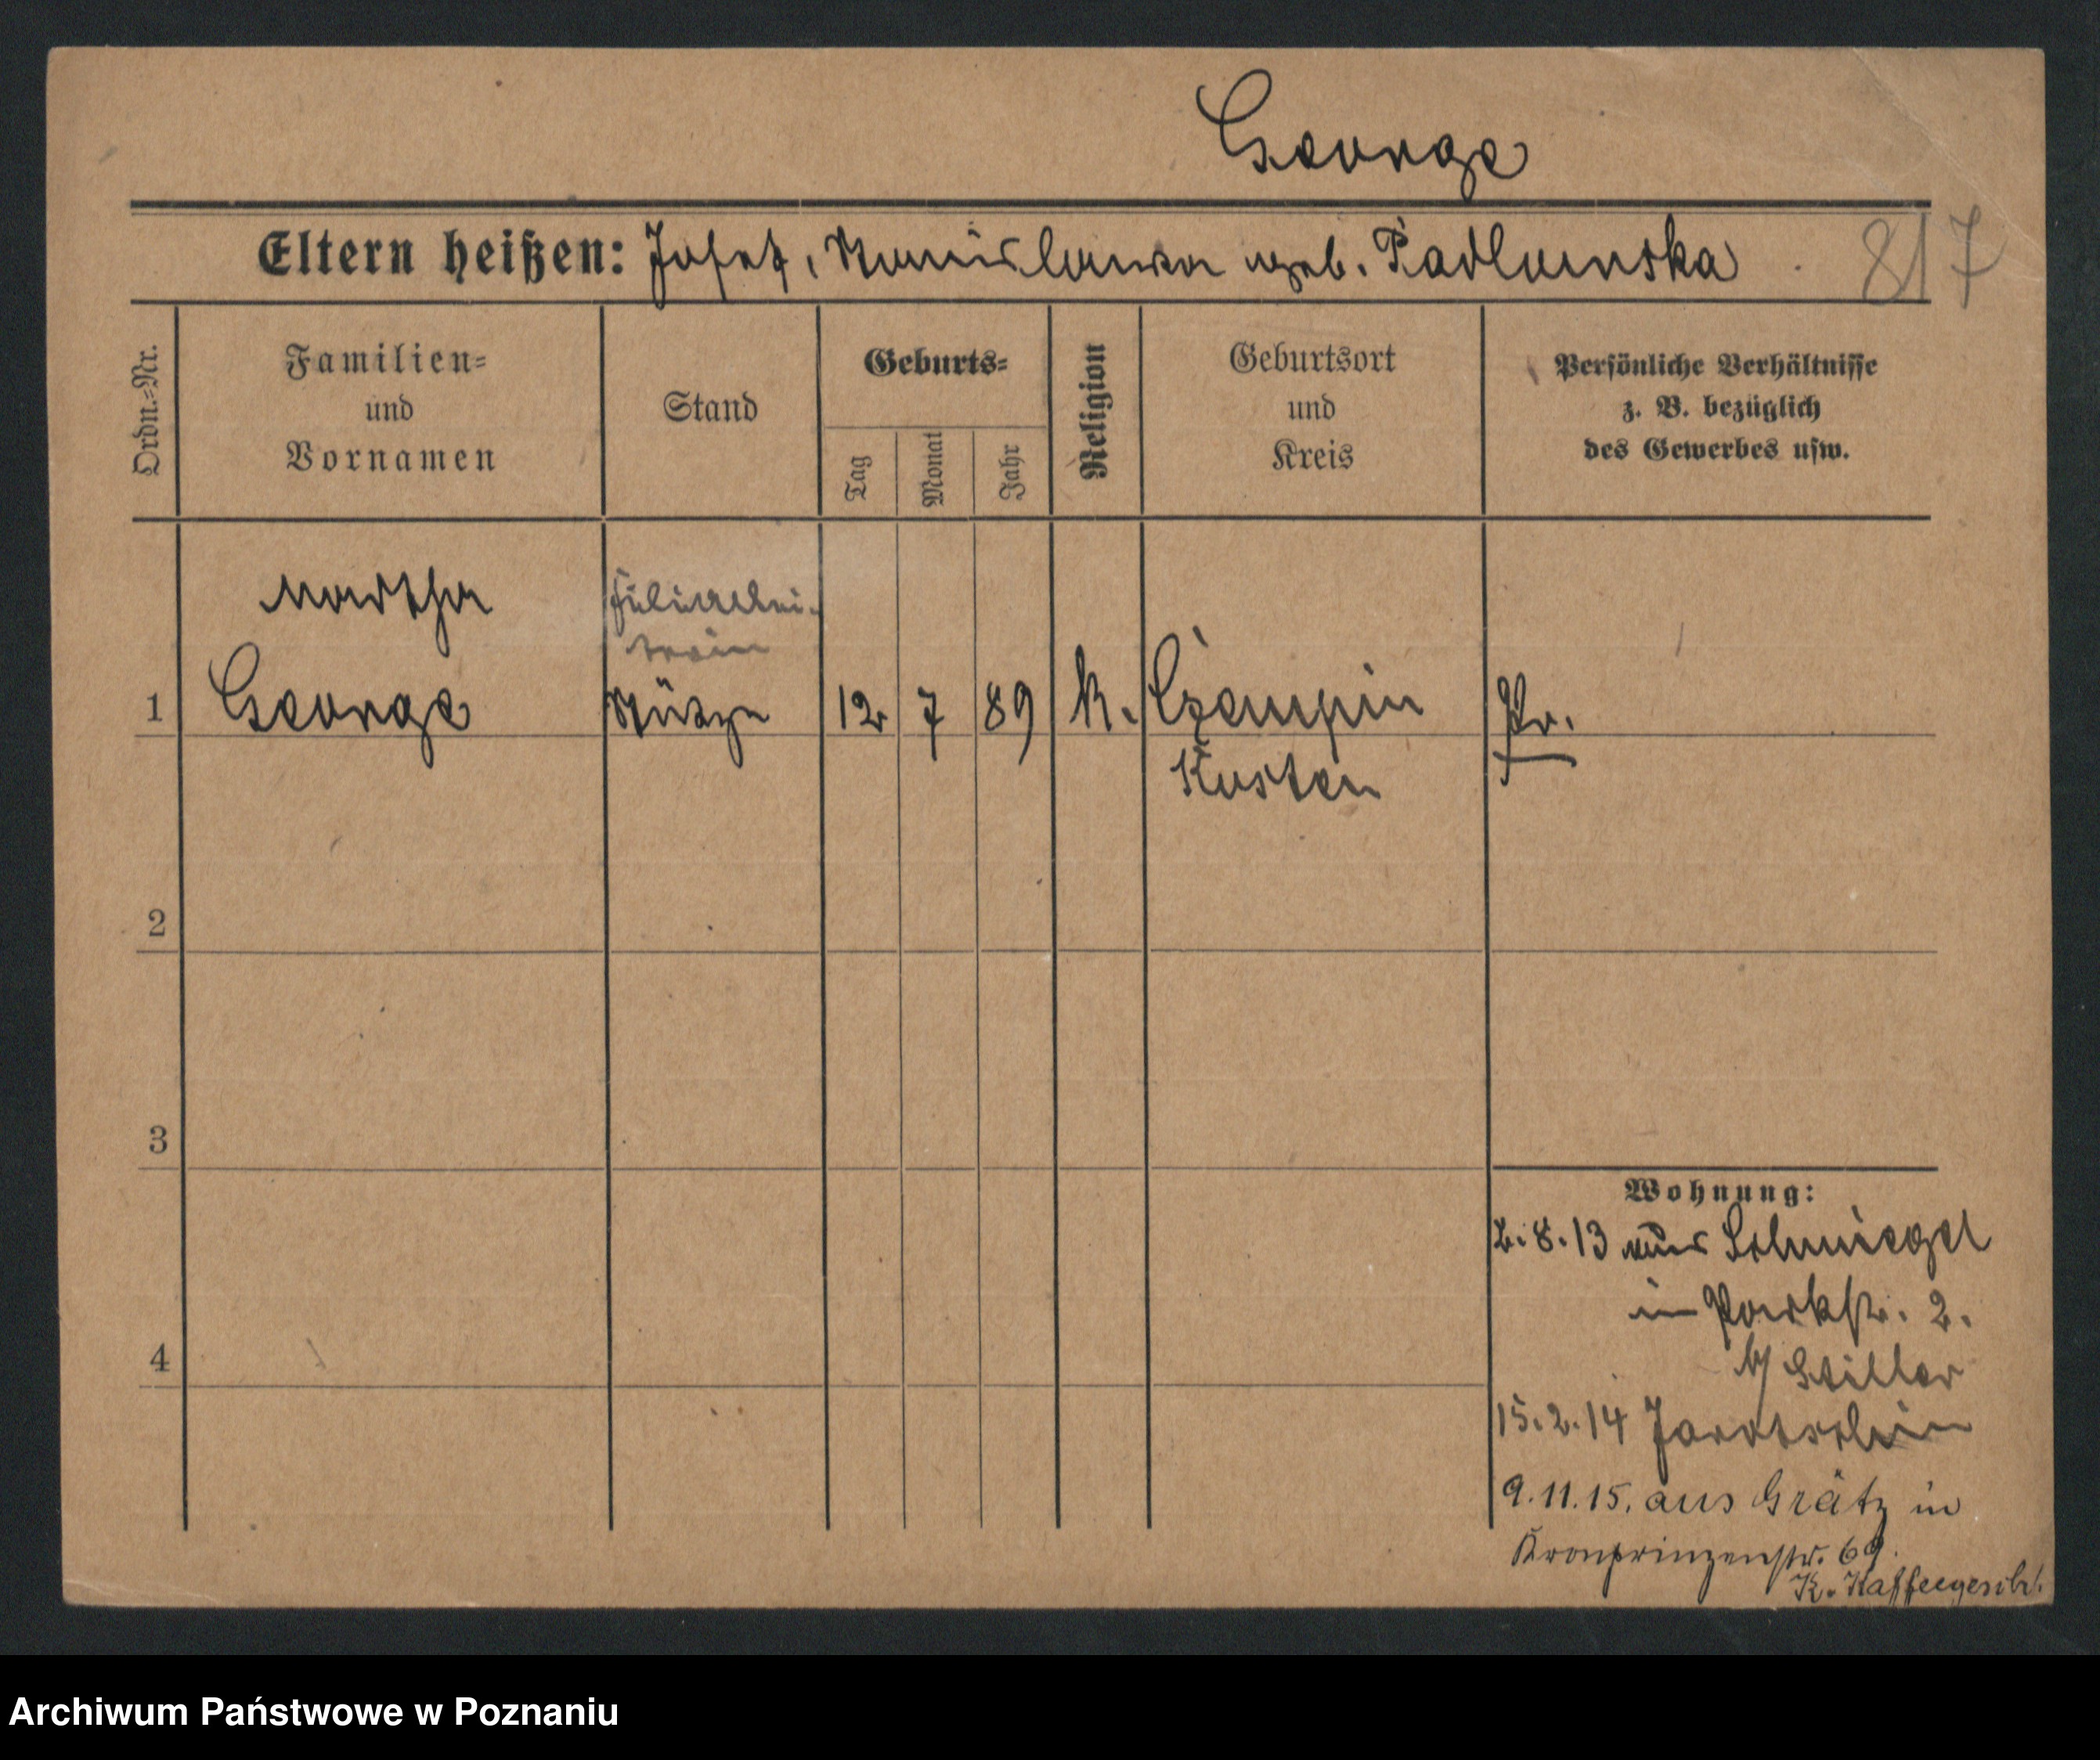 George
Eltern heißen: Josef, Stanislawa geb. Padlewska
817
Ordn.-Nr.
Familien-
und
Vornamen
Stand
Geburts-
Tag
Monat
Jahr
Religion
Geburtsort
und
Kreis
Persönliche Verhältnisse
z. B. bezüglich
des Gewerbes usw.
Martha
Filiallei-
terin
1 George Stütze 12 7 89 K. Czempin Pr.
Kosten
2
3
4
Wohnung:
2.8.13 aus Schmiegel
in Parkstr. 2.
b/ Stiller
15.2.14 Jarotschin
9.11.15. aus Grätz in
Kronprinzenstr. 69.
K. Kaffeegesch.
Archiwum Państwowe w Poznaniu